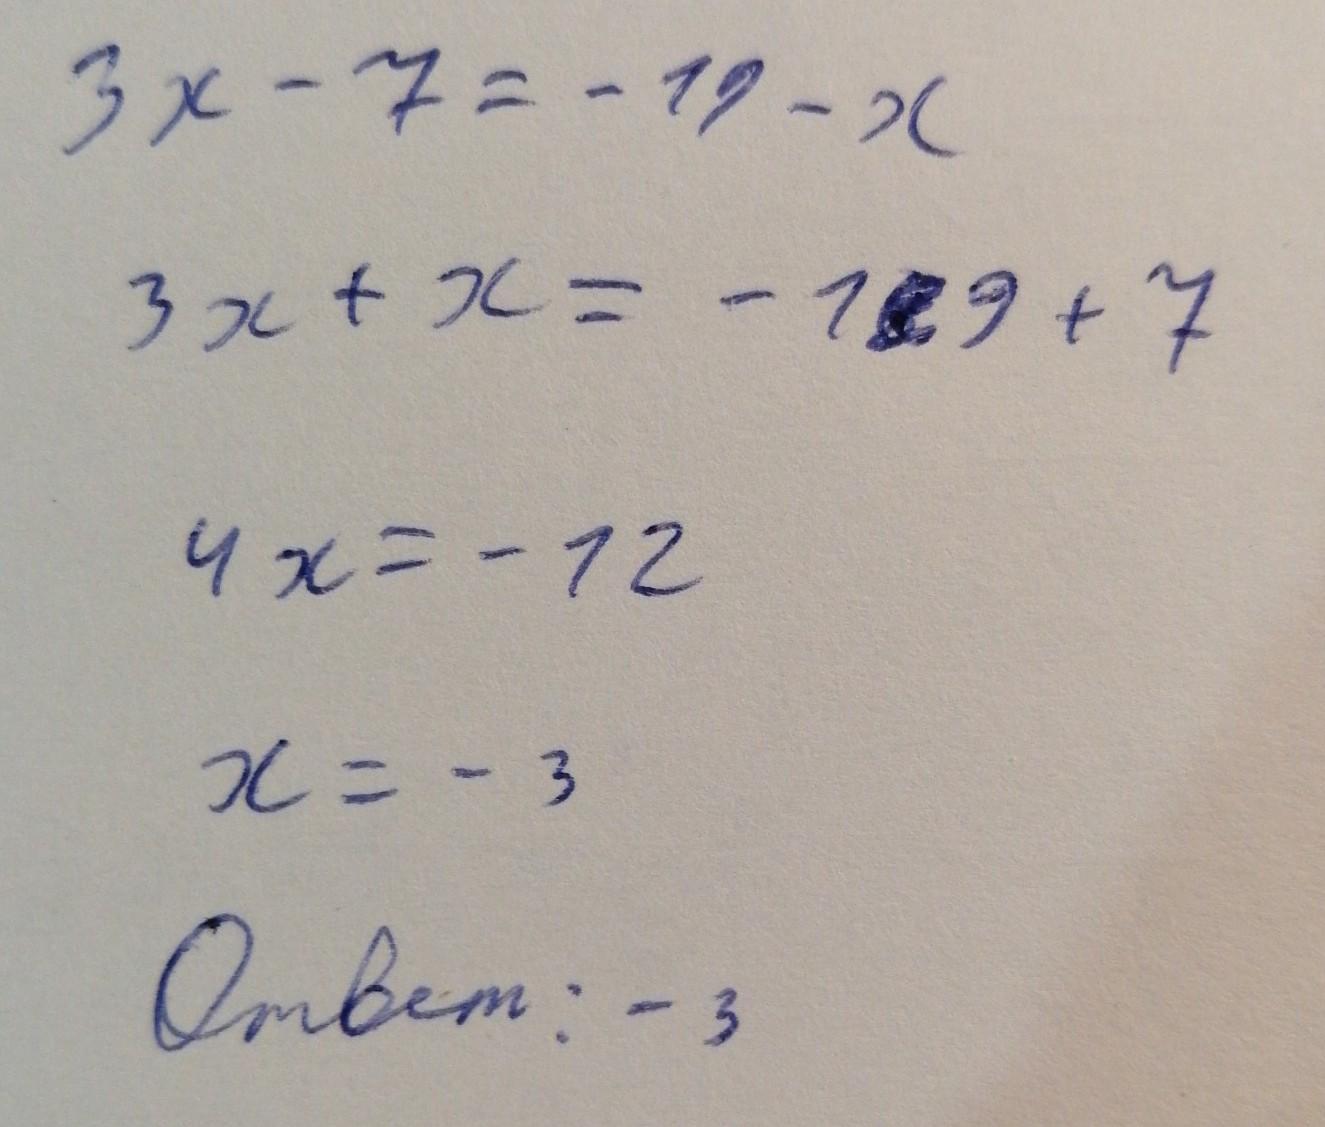 3x - 7 = - 19 - x
3x + x = - 19 + 7
4x = - 12
x = - 3
Ответ: - 3